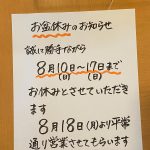 お盆休みのお知らせ
誠に勝手ながら
8月10日〜17日まで
(日) (日)
お休みとさせていただき
ます
8月18日(月)より平常
通り営業させてもらいます